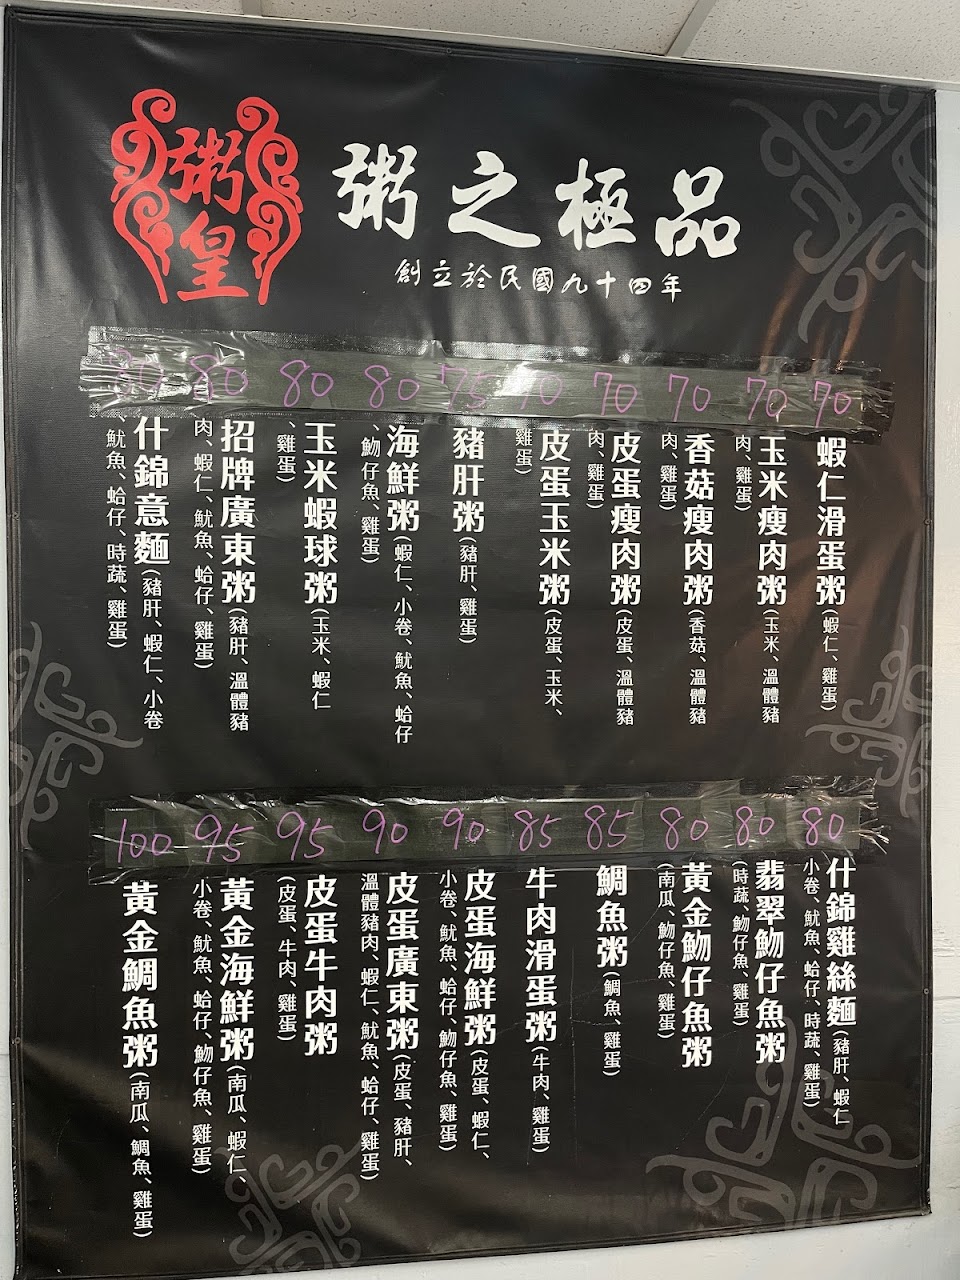 粥皇
粥之極品
創立於民國九十四年
70
蝦仁滑蛋粥(蝦仁、雞蛋)
70
玉米瘦肉粥(玉米、溫體豬
肉、雞蛋)
70
香菇瘦肉粥(香菇、溫體豬
肉、雞蛋)
70
皮蛋瘦肉粥(皮蛋、溫體豬
肉、雞蛋)
70
皮蛋玉米粥(皮蛋、玉米、
雞蛋)
75
豬肝粥(豬肝、雞蛋)
80
海鮮粥(蝦仁、小卷、魷魚、蛤仔
、魩仔魚、雞蛋)
80
玉米蝦球粥(玉米、蝦仁
、雞蛋)
80
招牌廣東粥(豬肝、溫體豬
肉、蝦仁、魷魚、蛤仔、雞蛋)
80
什錦意麵(豬肝、蝦仁、小卷
、魷魚、蛤仔、時蔬、雞蛋)
80
什錦雞絲麵(豬肝、蝦仁
小卷、魷魚、蛤仔、時蔬、雞蛋)
80
翡翠魩仔魚粥
(時蔬、魩仔魚、雞蛋)
80
黃金魩仔魚粥
(南瓜、魩仔魚、雞蛋)
85
鯛魚粥(鯛魚、雞蛋)
85
牛肉滑蛋粥(牛肉、雞蛋)
90
皮蛋海鮮粥(皮蛋、蝦仁、
小卷、魷魚、蛤仔、魩仔魚、雞蛋)
90
皮蛋廣東粥(皮蛋、豬肝、
溫體豬肉、蝦仁、魷魚、蛤仔、雞蛋)
95
皮蛋牛肉粥
(皮蛋、牛肉、雞蛋)
95
黃金海鮮粥(南瓜、蝦仁、
小卷、魷魚、蛤仔、魩仔魚、雞蛋)
100
黃金鯛魚粥(南瓜、鯛魚、雞蛋)